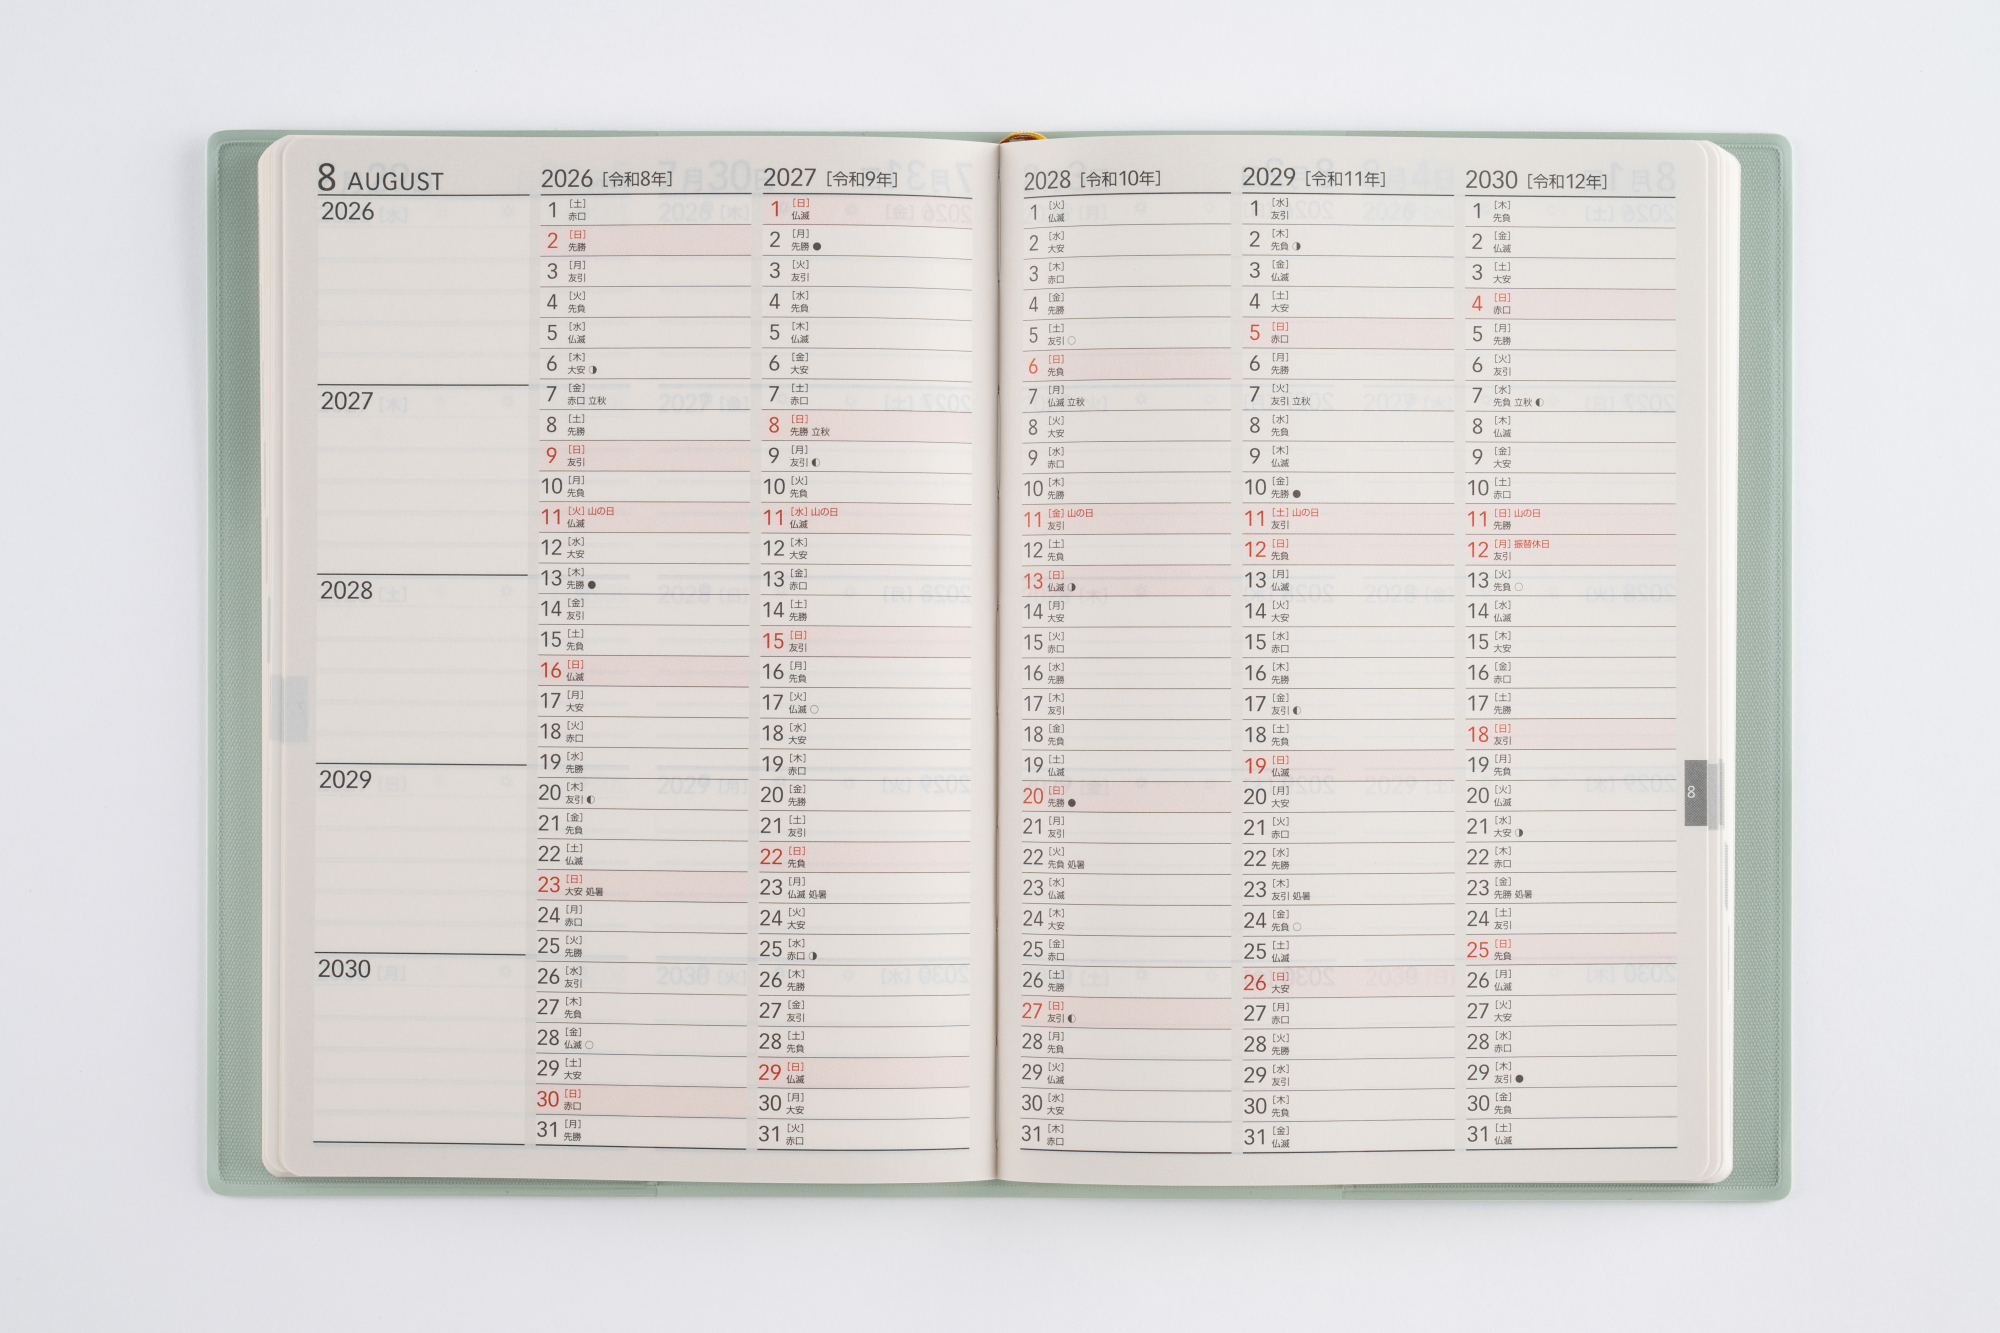 8 AUGUST
2026
2027
2028
2029
2030
2026 [令和8年]
1 [土]
赤口
2 [日]
先勝
3 [月]
友引
4 [火]
先負
5 [水]
仏滅
6 [木]
大安 ◑
7 [金]
赤口 立秋
8 [土]
先勝
9 [日]
友引
10 [月]
先負
11 [火] 山の日
仏滅
12 [水]
大安
13 [木]
先勝 ●
14 [金]
友引
15 [土]
先負
16 [日]
仏滅
17 [月]
大安
18 [火]
赤口
19 [水]
先勝
20 [木]
友引 ◐
21 [金]
先負
22 [土]
仏滅
23 [日]
大安 処暑
24 [月]
赤口
25 [火]
先勝
26 [水]
友引
27 [木]
先負
28 [金]
仏滅 ○
29 [土]
大安
30 [日]
赤口
31 [月]
先勝
2027 [令和9年]
1 [日]
仏滅
2 [月]
先勝 ●
3 [火]
友引
4 [水]
先負
5 [木]
仏滅
6 [金]
大安
7 [土]
赤口
8 [日]
先勝 立秋
9 [月]
友引 ◐
10 [火]
先負
11 [水] 山の日
仏滅
12 [木]
大安
13 [金]
赤口
14 [土]
先勝
15 [日]
友引
16 [月]
先負
17 [火]
仏滅 ○
18 [水]
大安
19 [木]
赤口
20 [金]
先勝
21 [土]
友引
22 [日]
先負
23 [月]
仏滅 処暑
24 [火]
大安
25 [水]
赤口 ◑
26 [木]
先勝
27 [金]
友引
28 [土]
先負
29 [日]
仏滅
30 [月]
大安
31 [火]
赤口
2028 [令和10年]
1 [火]
仏滅
2 [水]
大安
3 [木]
赤口
4 [金]
先勝
5 [土]
友引 ○
6 [日]
先負
7 [月]
仏滅 立秋
8 [火]
大安
9 [水]
赤口
10 [木]
先勝
11 [金] 山の日
友引
12 [土]
先負
13 [日]
仏滅 ◑
14 [月]
大安
15 [火]
赤口
16 [水]
先勝
17 [木]
友引
18 [金]
先負
19 [土]
仏滅
20 [日]
先勝 ●
21 [月]
友引
22 [火]
先負 処暑
23 [水]
仏滅
24 [木]
大安
25 [金]
赤口
26 [土]
先勝
27 [日]
友引 ◐
28 [月]
先負
29 [火]
仏滅
30 [水]
大安
31 [木]
赤口
2029 [令和11年]
1 [水]
友引
2 [木]
先負 ◑
3 [金]
仏滅
4 [土]
大安
5 [日]
赤口
6 [月]
先勝
7 [火]
友引 立秋
8 [水]
先負
9 [木]
仏滅
10 [金]
先勝 ●
11 [土] 山の日
友引
12 [日]
先負
13 [月]
仏滅
14 [火]
大安
15 [水]
赤口
16 [木]
先勝
17 [金]
友引 ◐
18 [土]
先負
19 [日]
仏滅
20 [月]
大安
21 [火]
赤口
22 [水]
先勝
23 [木]
友引 処暑
24 [金]
先負 ○
25 [土]
仏滅
26 [日]
大安
27 [月]
赤口
28 [火]
先勝
29 [水]
友引
30 [木]
先負
31 [金]
仏滅
2030 [令和12年]
1 [木]
先負
2 [金]
仏滅
3 [土]
大安
4 [日]
赤口
5 [月]
先勝
6 [火]
友引
7 [水]
先負 立秋 ◐
8 [木]
仏滅
9 [金]
大安
10 [土]
赤口
11 [日] 山の日
先勝
12 [月] 振替休日
友引
13 [火]
先負 ○
14 [水]
仏滅
15 [木]
大安
16 [金]
赤口
17 [土]
先勝
18 [日]
友引
19 [月]
先負
20 [火]
仏滅
21 [水]
大安 ◑
22 [木]
赤口
23 [金]
先勝 処暑
24 [土]
友引
25 [日]
先負
26 [月]
仏滅
27 [火]
大安
28 [水]
赤口
29 [木]
友引 ●
30 [金]
先負
31 [土]
仏滅
8